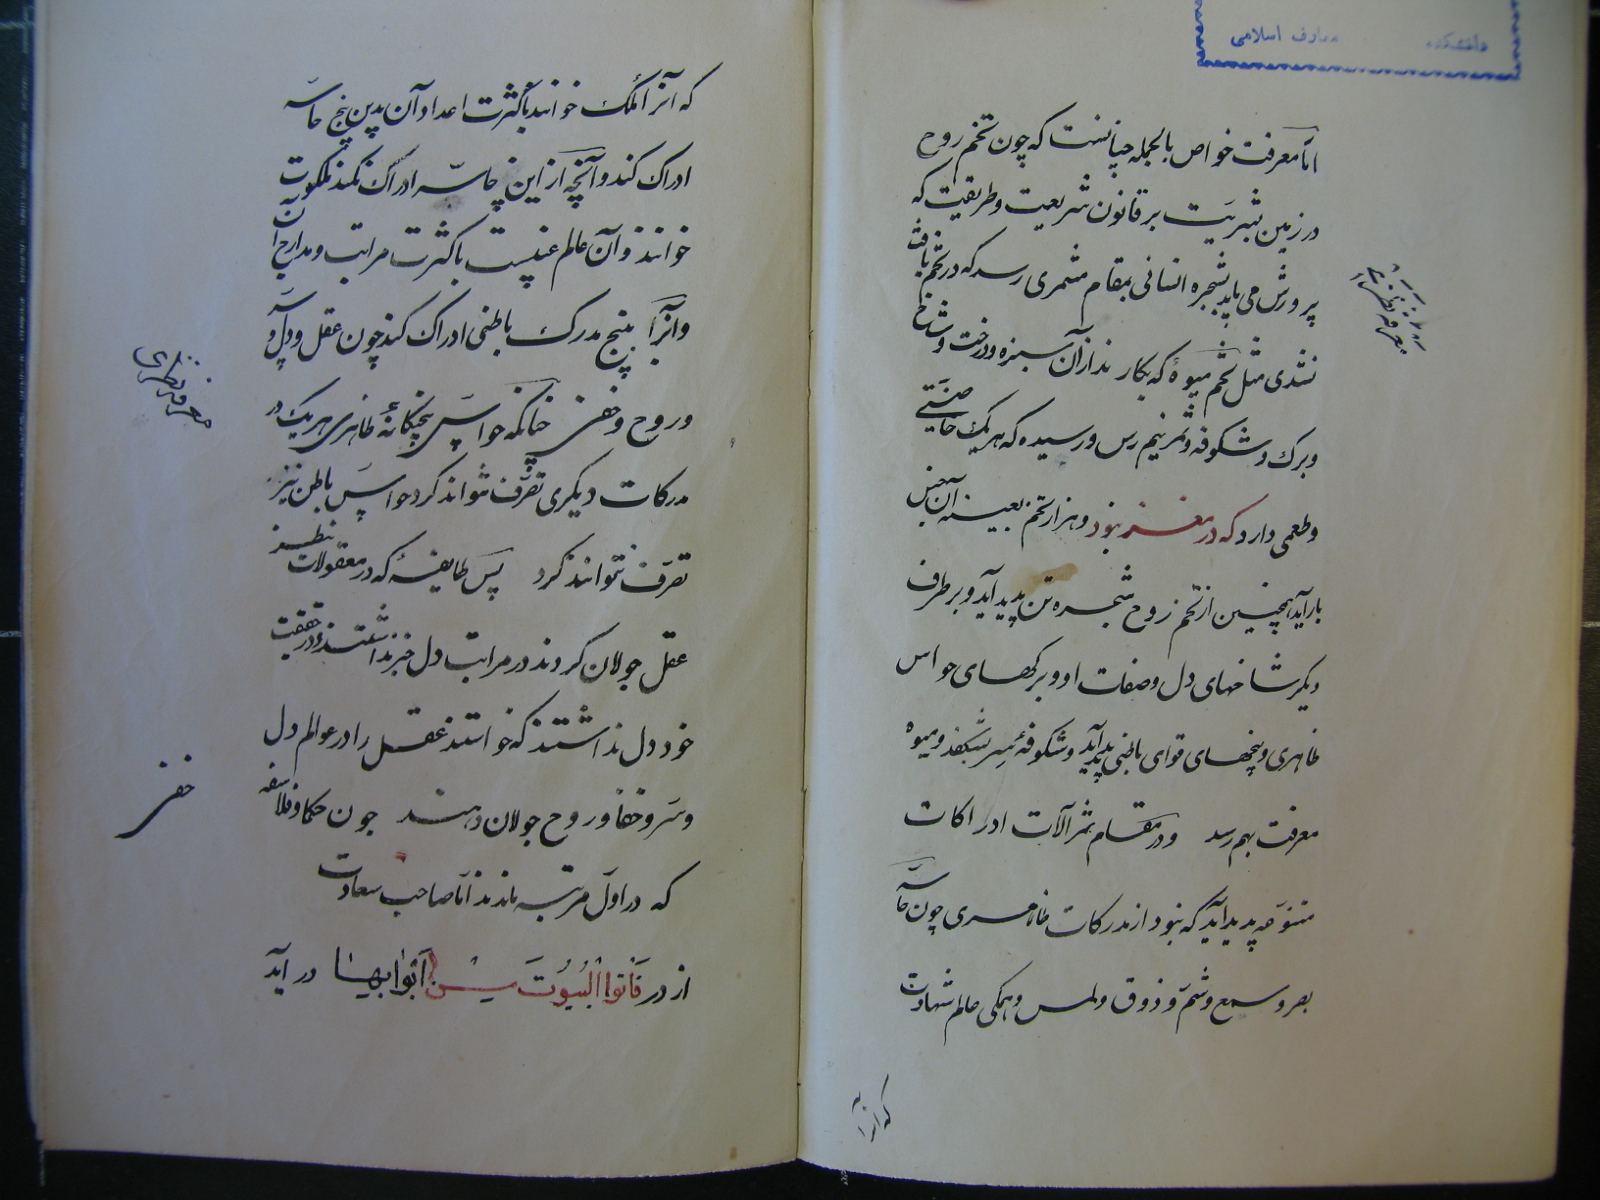 دانشکده معارف اسلامی
اما معرفت خواص بالجمله چنانست که چون تخم روح
در زمین بشریت بر قانون شریعت و طریقت که
پرورش می یابد شجره انسانی بمقام مثمری رسد که در تخم یافت
نشدی مثل تخم میوهٔ که بکار ند از آن سبزه و درخت و شاخ
و برک و شکوفه و ثمر نیم رس و رسیده که هر یک خاصیتی
و طعمی دارد که در مغز نبود و هزار تخم بعینه آن جنس
بار آید همچنین از تخم روح شجره تن پدید آید و بر طرف
دیگر شاخهای دل و صفات او و برکهای حواس
ظاهری و بیخهای قوای باطنی پدید آید و شکوفهٔ سر بشکفد و میوه
معرفت بهم رسد و در مقام ثمر آلات ادراکات
متنوعه پدید آید که نبود از مدرکات ظاهری چون حاسّه
بصر و سمع و شم و ذوق و لمس و همکی عالم شهادت
که آنرا
که آنرا ملک خوانند باکثرت اعداد آن بدین پنج حاسّه
ادراک کند و آنچه از این پنج حاسّه ادراک نکند ملکوت
خوانند و آن عالم غیبست باکثرت مراتب و مدارج آن
و آنرا بپنج مدرک باطنی ادراک کند چون عقل و دل و
و روح و خفی چنانکه حواس پنجکانهٔ ظاهری هر یک در
مدرکات دیکری تصرف نتواند کرد حواس باطن نیز
تصرف نتوانند کرد پس طایفهٔ که در معقولات بنظر
عقل جولان کردند در مراتب دل خبر نداشتند و در حقیقت
خود دل نداشتند که خواستند عقل را در عوالم دل
و سر و خفا و روح جولان دهند چون حکما و فلاسفه
که در اول مرتبه ماندند اما صاحب سعادت
از در فَأْتوا الْبُیُوتَ مِنْ اَبْوابِها در آید
معرفت نظری
خفی